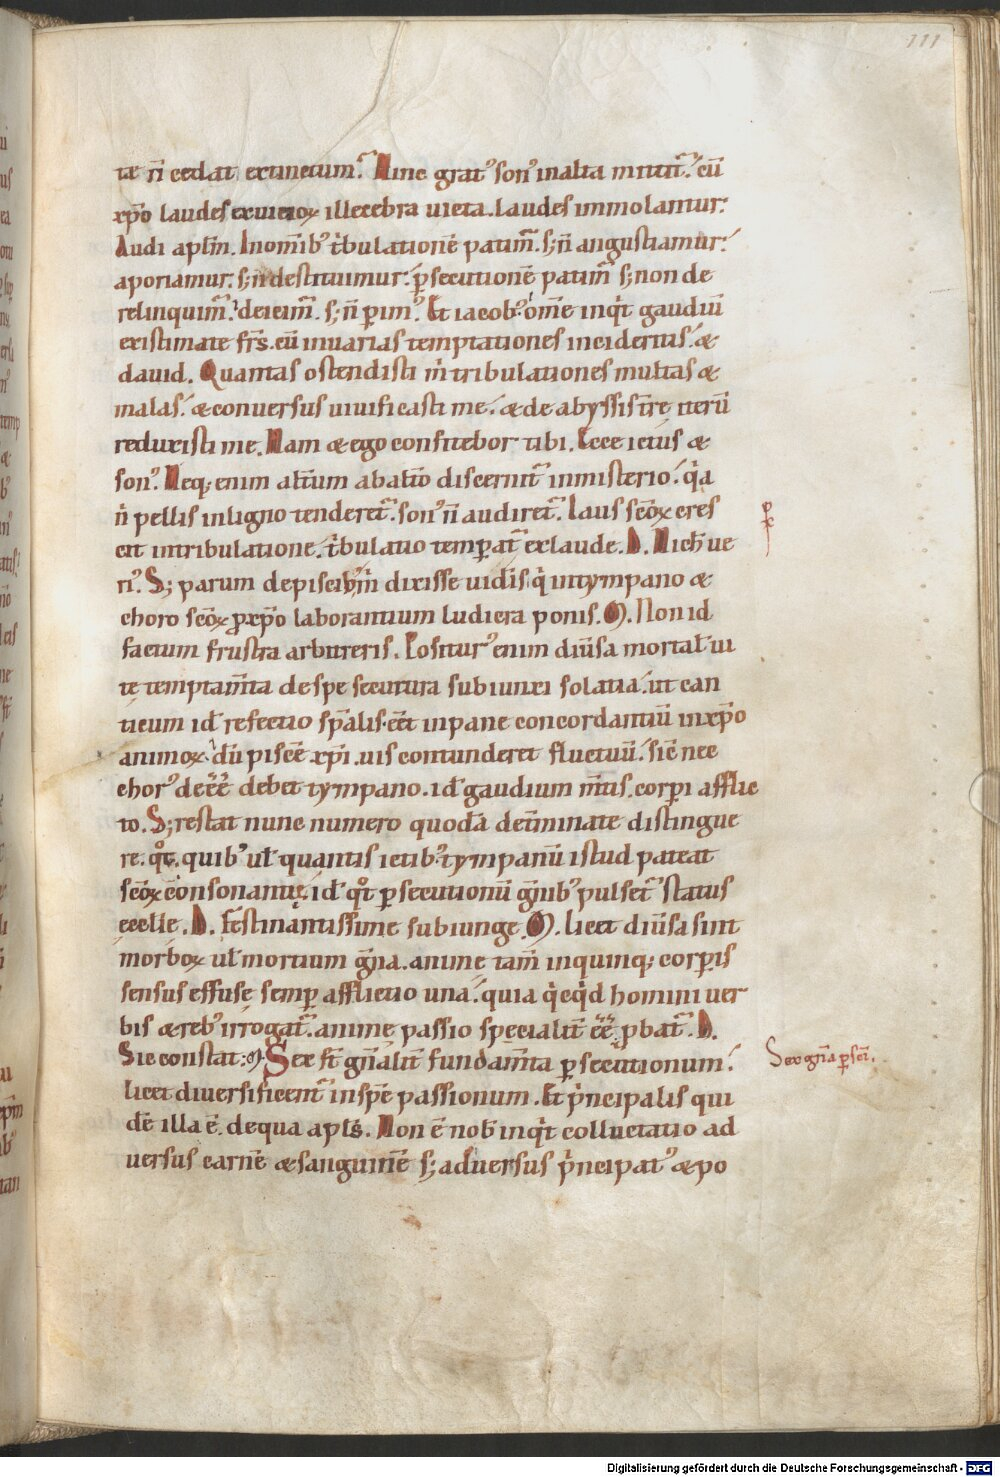 111
tę n̄ cedat extinctum. Hinc grat᷒ son᷒ in alta mittit᷑. cū
xp̄o laudes ex uicioꝝ illecebra uicta. laudes immolantur.
Audi apl̄m. In omib᷒ t̓bulationē patim᷑. s; n̄ angustiamur.
aporiamur. s; n̄ destituimur. ꝑsecutionē patim᷑ s; non de
relinquim᷑. deicim᷑. s; n̄ ꝑim᷒. Et iacob᷒. om̄e inq̓t gaudiū
existimate fr̄s. cū in uarias temptationes incideritis. &
dauid. Quantas ostendisti m̓ tribulationes multas &
malas. & conuersus uiuificasti me. & de abyssis t̄re iterū
reduxisti me. Nam & ego confitebor tibi. Ecce ictus &
son᷒. Neq; enim alt̄um ab alt̄o discernit᷑ in misterio. q̓a
n̓ pellis in ligno tenderet᷑. son᷒ n̄ audiret᷑. Laus sc̄oꝝ cres
cit in tribulatione. t̓bulatio temꝑat᷑ ex laude. D. Nich̄ ue
ri᷒. S; parum de piscib᷒ m̓ dixisse uid̄is q̓ in tympano &
choro sc̄oꝝ ꝓ xp̄o laborantium ludicra ponis. M. Non id
factum frustra arbitreris. Positur᷒ enim diūsa mortal̄ ui
tę temptam̄ta de spe secutura subiunxi solatia. ut can
ticum id̄ refectio sp̄alis. eēt in pane concordantiū in xp̄o
animoꝝ. dū piscē xp̄i. uis contunderet fluctuū. sic̄ nec
chor᷒ deēē debet tympano. id̄ gaudium m̄tis. corꝑi afflic
to. S; restat nunc numero quodā det̄minate distingue
re. q̊t. quib᷒ ul̄ quantis ictib᷒ tympanū istud pateat
sc̄oꝝ consonantię. id̄ q̊t ꝑsecutionū gn̄ib᷒ pulset᷑ status
ęccl̄ię. D. Festinantissime subiunge. M. Licet diūsa sint
morboꝝ ul̄ mortium gn̄a. animę tam̄ in quinq; corꝑis
sensus effusę semꝑ afflictio una. quia q̓cq̓d homini uer
bis & reb᷒ irrogat᷑. animę passio specialit̄ ēē ꝓbat᷑. D.
Sic constat. M. Sex s̄t gn̄alit̄ fundam̄ta ꝑsecutionum.
Sex gn̄a ꝑsec̄.
licet diuersificent᷑ in spē passionum. Et p̓ncipalis qui
dē illa ē. de qua apl̄s. Non ē nob̄ inq̓t colluctatio ad
uersus carnē & sanguinē s; aduersus p̓ncipat᷒ & po
Digitalisierung gefördert durch die Deutsche Forschungsgemeinschaft - DFG